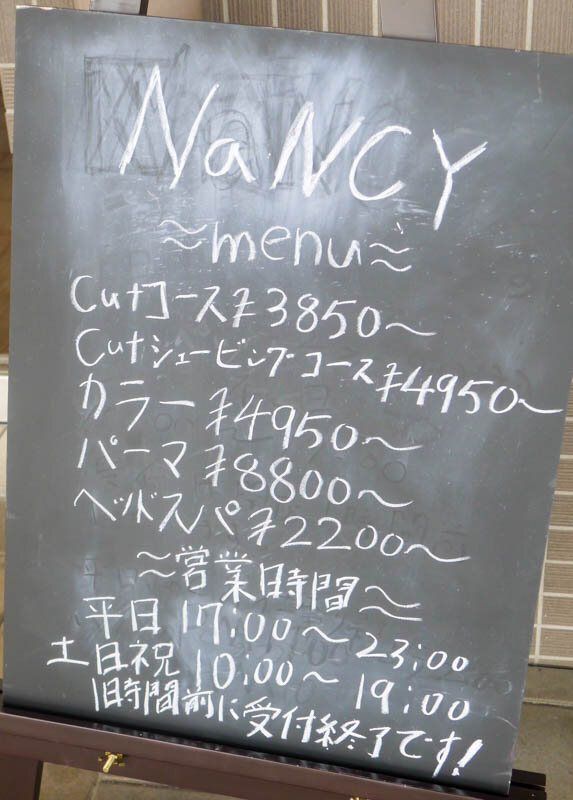 NaNCY
～menu～
Cutコース ¥3850～
Cutシェービングコース ¥4950～
カラー ¥4950～
パーマ ¥8800～
ヘッドスパ ¥2200～
～営業時間～
平日 17:00～23:00
土日祝 10:00～19:00
1時間前に受付終了です!